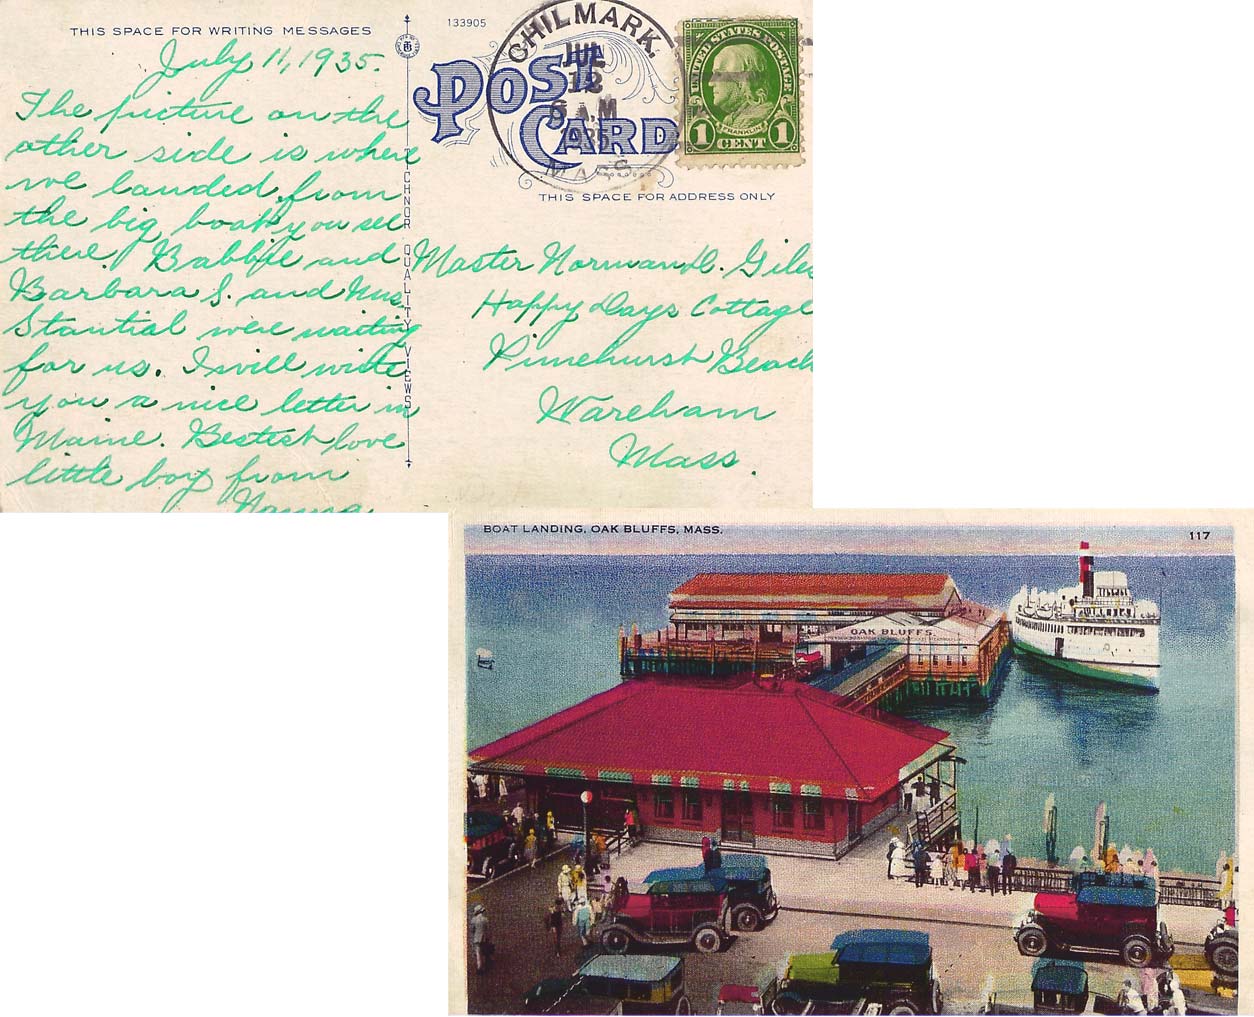 THIS SPACE FOR WRITING MESSAGES
July 11, 1935.
The picture on the
other side is where
we landed from
the big boat you see
there. Babbie and
Barbara S. and Mrs.
Stantial were waiting
for us. I will write
you a nice letter in
Maine. Bestest love
little boy from
TICHNOR QUALITY VIEWS
133905
POST CARD
CHILMARK.
JUL
12
9 A.M
1935
MASS.
UNITED STATES POSTAGE
FRANKLIN
1 CENT 1
THIS SPACE FOR ADDRESS ONLY
Master Norman D. Giles
Happy Days Cottage
Pinehurst Beach
Wareham
Mass.
BOAT LANDING, OAK BLUFFS, MASS.
117
OAK BLUFFS